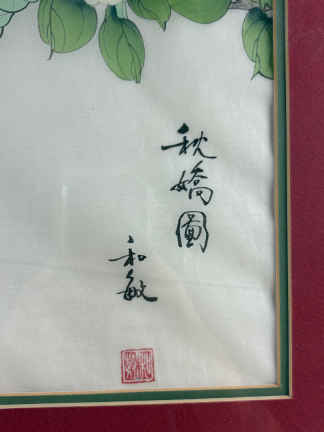 秋嬌圖
和敏